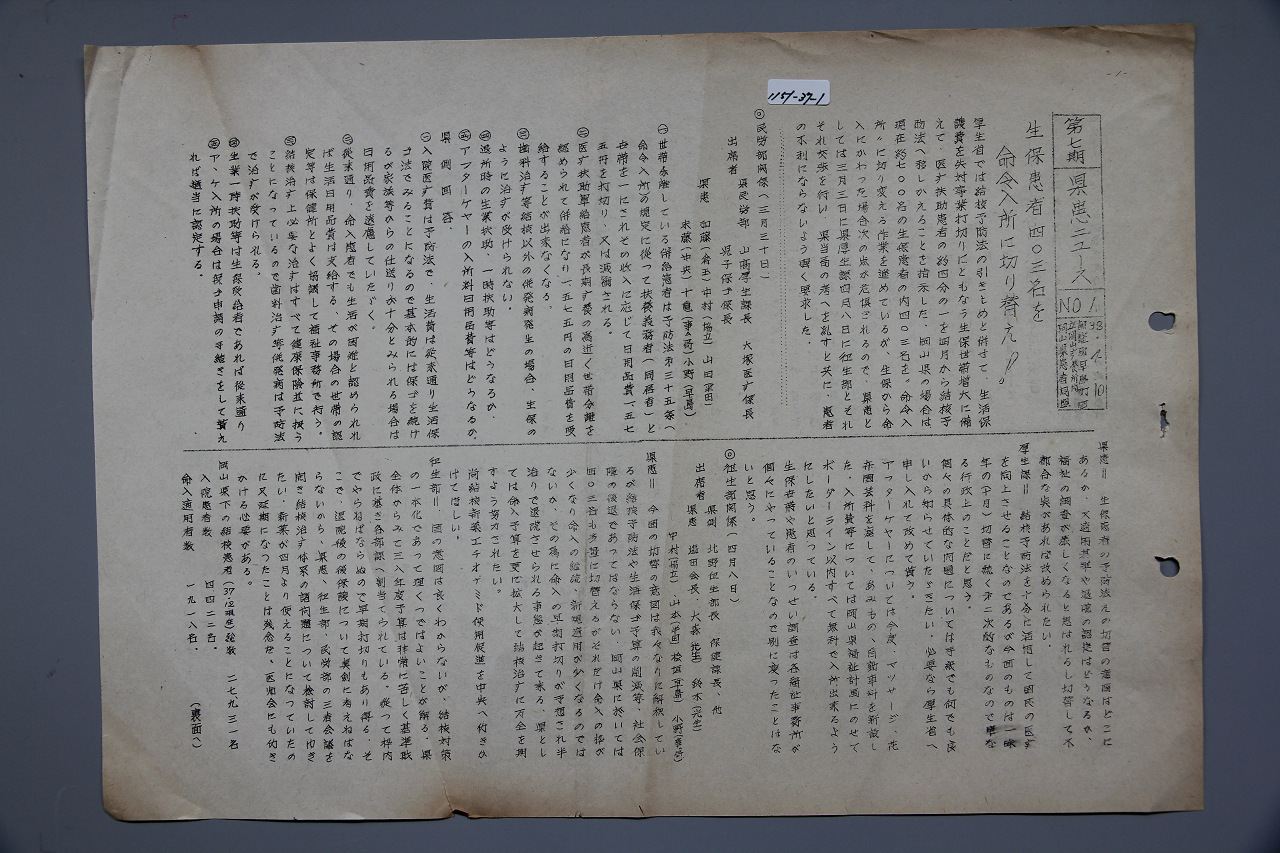 -1-
1157-37-1
第七期 県患ニュース NO 1.
38.4.10
岡山県患者同盟
生保患者四〇三名を
命令入所に切り替え!!
厚生省では結核予防法の引きとめと併せて、生活保
護費を失対事業打切りにともなう生保世帯増大に備
えて、医す扶助患者の約四分の一を四月から結核予
防法へ移しかえることを指示した。岡山県の場合は
現在約七〇〇名の生保患者の内四〇三名を、命令入
所に切り変える作業を進めているが、生保から命
入にかわった場合次の点が危惧されるので、県患と
しては三月三日に県厚生課四月八日に衛生部とそれ
ぞれ交渉を行い、県当局の考へを乱すと共に、患者
の不利にならないよう強く要求した。
◎民労部関係(三月三十日)
出席者 県民労部 山崎厚生課長 大塚医す係長
児子保ゴ係長
県患 加藤(倉玉)中村(協立)山田(津田)
㊀世帯分離している併給患者は予防法第三十五条へ
命令入所の規定に従つて扶養義務者(同居者)と
世帯を一にされその収入に応じて日用品費一五七
五円を打切り、又は減額される。
㊁医す扶助単給患者が長期す養の為近く世帯分離を
認められて併給になり一五七五円の日用品費を受
給することが出来なくなる。
㊂歯科治す等結核以外の併発病発生の場合、生保の
ように治すが受けられない。
㊃退所時の生業扶助、一時扶助等はどうなるか。
㊄アフターケヤーの入所料日用品費等はどうなるか。
県側回答、
㊀入院医す費は予防法で、生活費は従来通り生活保
ゴ法でみることになるので基本的には保ゴを続け
るが家族等からの仕送り分十分とみられる場合は
日用品費を遠慮していたゞく。
㊁従来通り、命入患者でも生活が困難と認められれ
ば生活日用品費は支給する。その場合の世帯の認
定等は保健所とよく協議して福祉事務所で行う。
㊂結核治す上必要な治すはすべて健康保険並に扱う
ことになっているので歯科治す等併発病は予防法
で治すが受けられる。
㊃生業一時扶助等は生保受給者であれば従来通り
㊄ア、ケ入所の場合は保ゴ申請の手続きをして貰え
れば適当に認定する。
県患= 生保患者の予防法えの切替の意図はどこに
あるか、又適用基準や退院の認定はどうなるか、
福祉の調査が激しくなると思はれるし切替して不
都合な点があれば改められたい。
厚生課= 結核予防法を十分に活用して国民の医す
を向上させることなのであるが今回のものは一昨
年の(十月)切替に続く第二次的なものなので単な
る行政上のことだと思う。
個々の具体的な問題については手紙でも何でも良
いから知らせていたゞきたい。必要なら厚生省へ
申し入れて改めて貰う。
アフターケヤーについては今度、マッサージ、花
弁園芸科を廃して、あみもの、自動車科を新設し
た、入所費等については岡山県福祉計画にのせて
ボーダーライン以内すべて無料で入所出来るよう
にしたいと思つている。
生保世帯や患者のいっせい調査は各福祉事務所が
個々にやっていることなので別に変ったことはな
いと思う。
◎衛生部関係(四月八日)
出席者 県側 北野衛生部長 保健課長、他
県患
県患= 今回の切替の意図は我々なりに解釈してい
るが結核予防法や生活保ゴ予算の削減等、社会保
障の後退であってはならない、岡山県に於いては
四〇三名も多量に切替えるがそれだけ命入の枠が
少くなり命入の継続、新規適用が少くなるのでは
ないか、その為に命入の早期打切りが予想され半
治りで退院させられる事態が起きて来る、県とし
ては命入予算を更に拡大して結核治すに万全を期
すよう努力されたい。
尚結核新薬エチオナミド使用促進を中央へ働きか
けてほしい。
衛生部= 国の意図は良くわからないが、結核対策
の一本化であって理くつではよいことが解る、県
全体からみて三八年度予算は非常に苦しく基準財
政に基き各部課へ割当てられている。従って枠内
でやらねばならぬので早期打切りもあり得る。そ
こで、退院後の後保護について真剣に考えねばな
らないから、県患、衛生部、民労部の三者会議を
開き結核治す体系の諸問題について検討してゆき
たい、新薬が四月より使えることになっていたの
に又延期になったことは残念だ、医師会にも働き
かける必要がある。
岡山県下の結核患者(37.12現在)総数 二七九三一名
入院患者数 四四二二名、
命入適用者数 一九一八名、
(裏面へ)